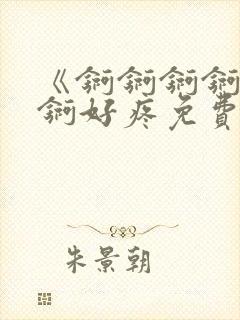 《锕锕锕锕
锕好疼免费
朱景朝